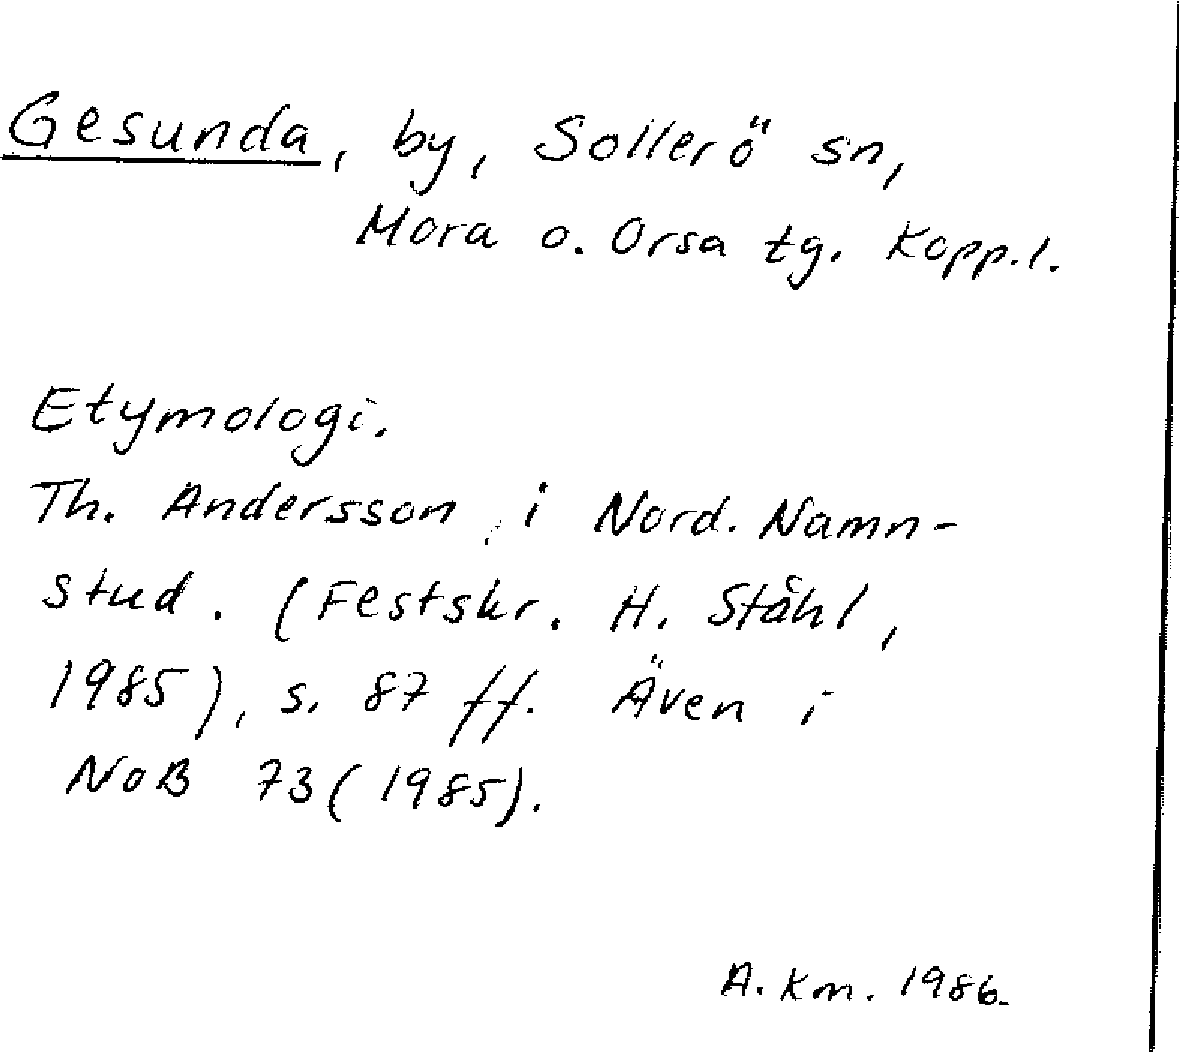 Gesunda, by, Sollerö sn,
Mora o. Orsa tg. Kopp.l.
Etymologi.
Th. Andersson, i Nord. Namn-
stud. (Festskr. H. Ståhl,
1985), s. 87 ff. Även i
NoB 73(1985).
A. Km. 1986.